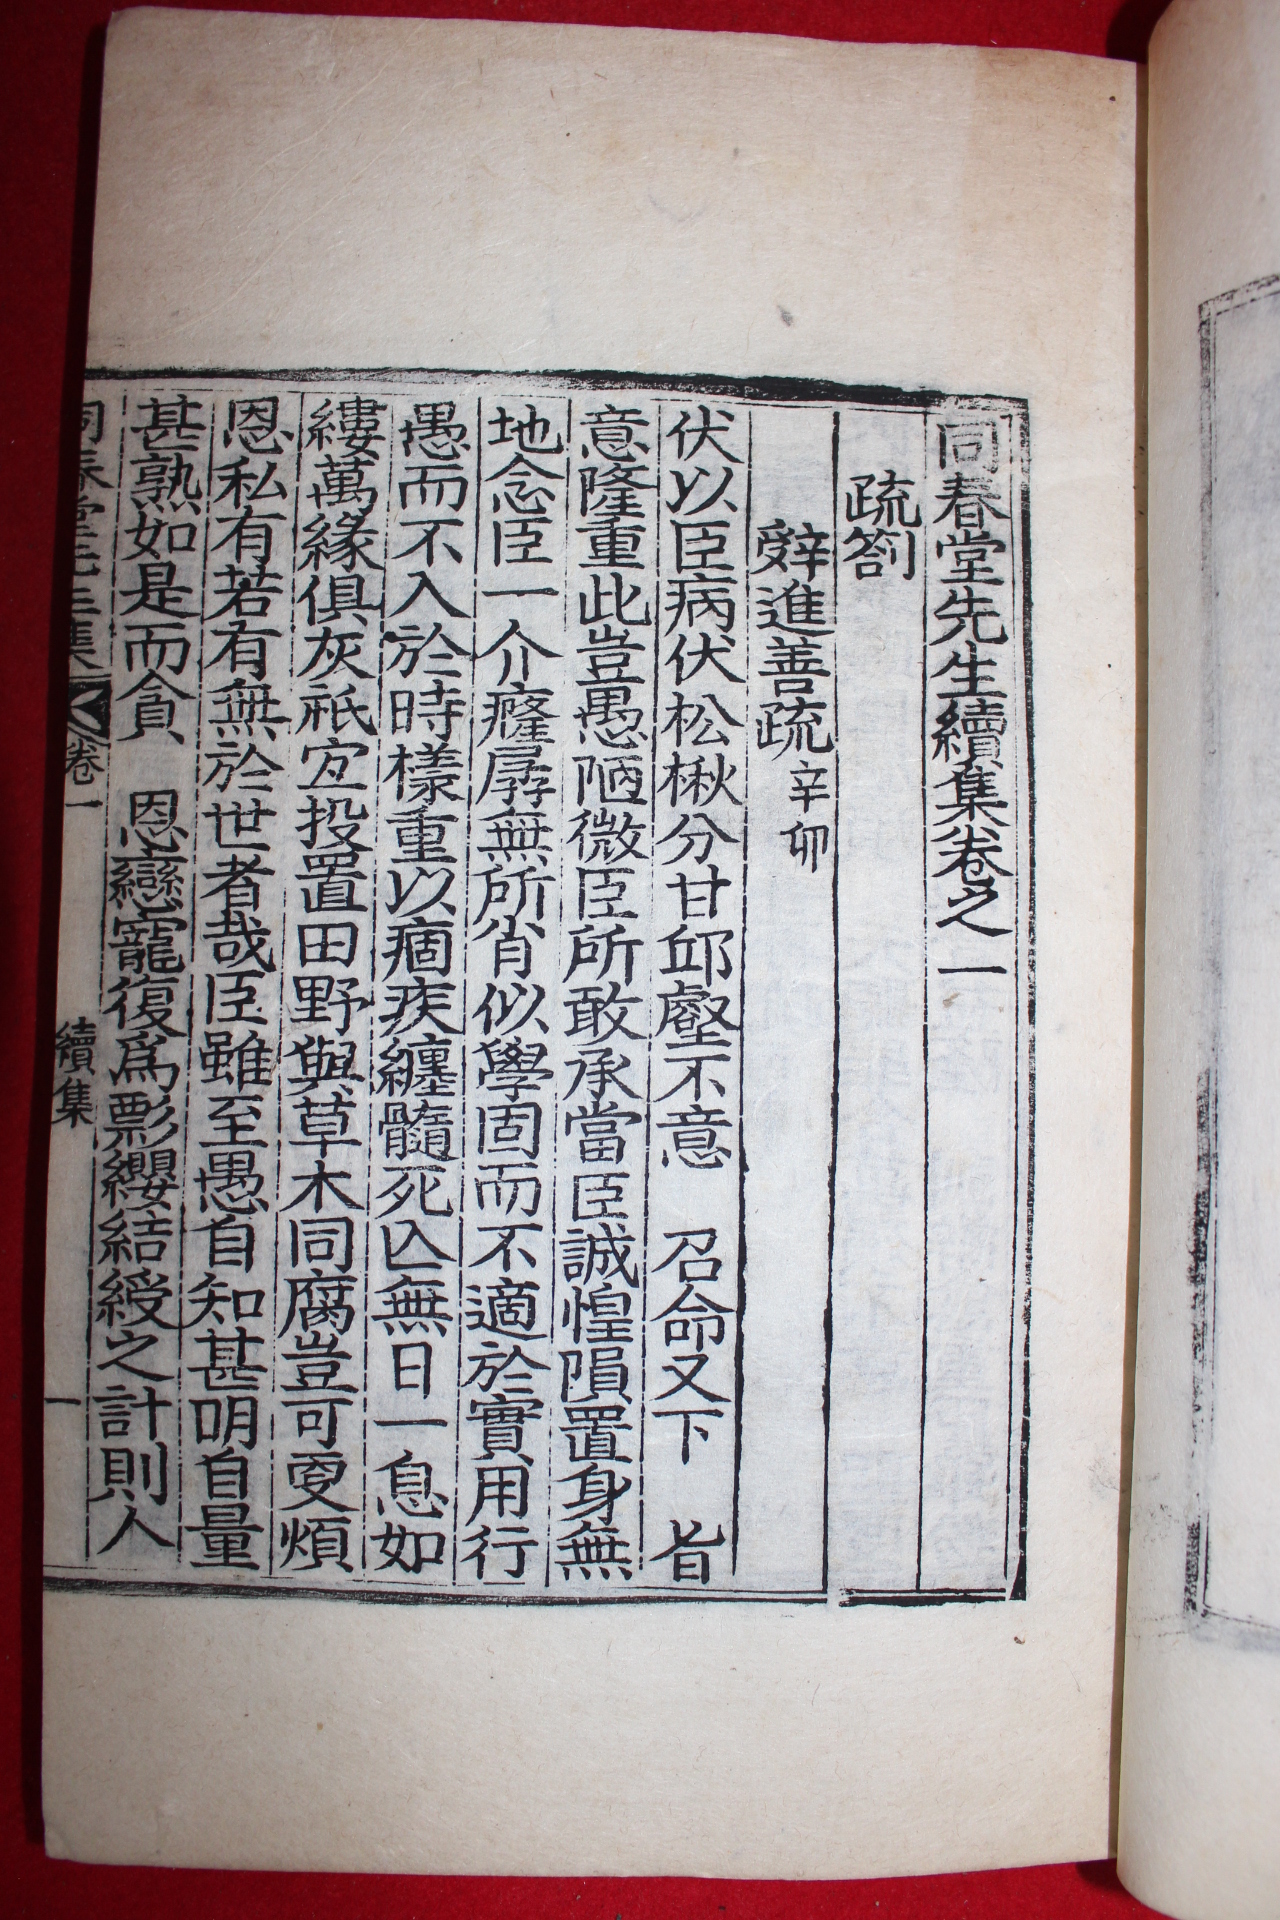 同春堂先生續集卷之一
疏箚
辭進善疏 辛卯
伏以臣病伏松楸分甘邱壑不意 召命又下 旨
意隆重此豈愚陋微臣所敢承當臣誠惶隕置身無
地念臣一介癃孱無所肖似學固而不適於實用行
愚而不入於時樣重以痼疾纏髓死亾無日一息如
縷萬緣俱灰祇宜投置田野與草木同腐豈可更煩
恩私有若有無於世者哉臣雖至愚自知甚明自量
甚熟如是而貪 恩戀寵復爲彯纓結綬之計則人
同春堂先生集 卷一 續集 一